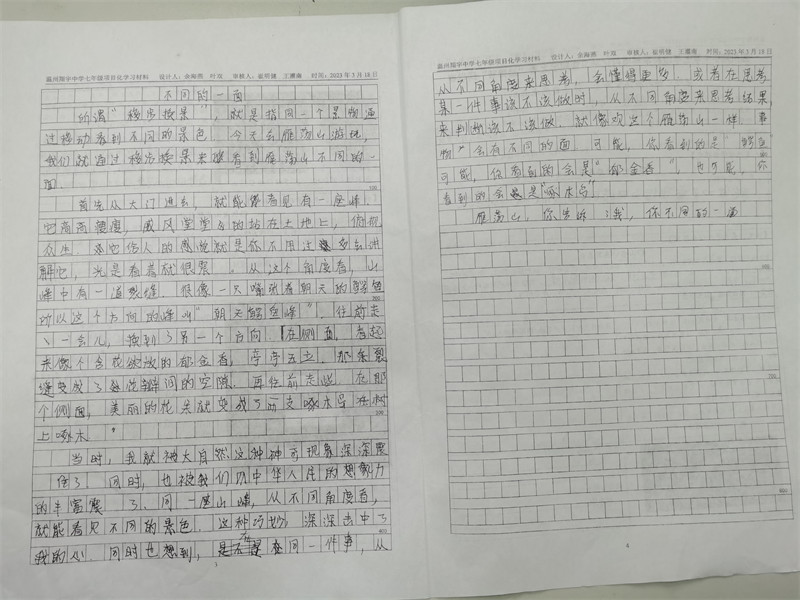 温州翔宇中学七年级项目化学习材料 设计人：余海燕 叶双 审核人：翟明健 王露海 时间：2023年3月18日
不同的一面
所谓“移步换景”，就是指同一个景物通
过移动看到不同的景色。今天去雁荡山游玩，
我们就通过移步换景来看到雁荡山不同的一
面。
首先从大门进去，就能看见有一座峰，
它高高瘦瘦，威风堂堂的站在土地上，俯视
众生。它给人的感觉就是你不用过多去讲
解它，光是看着就很累。从这个角度看，山
峰中有一道裂缝，很像一只嘴张着朝天的鳄鱼
所以这个方向的峰叫“朝天鳄鱼峰”。往前走
一会儿，换到了另一个方向。在侧面，看起
来像个含苞欲放的郁金香，亭亭玉立，那条裂
缝变成了花瓣间的空隙。再往前走些，在那
个侧面，美丽的花朵就变成了一支啄木鸟在树
上啄木。
当时，我就被大自然这种神奇现象深深震
住了。同时，也被我们中华人民的想象力
的丰富震了。同一座山峰，从不同角度看，
就能看见不同的景色。这种巧妙，深深击中了
我的心。同时也想到，是在同一件事，从
100
200
300
400
温州翔宇中学七年级项目化学习材料 设计人：余海燕 叶双 审核人：翟明健 王露海 时间：2023年3月18日
从不同角度来思考，会懂得更多。或者在思考
某一件事该不该做时，从不同角度来思考结果，
来判断该不该做。就像欢这个雁荡山一样，事
物会有不同的面。可能，你看到的是“鳄鱼”
可能，你看到的会是“郁金香”，也可能，你
看到的会是“啄木鸟”
雁荡山，你告诉了我，你不同的一面
600
700
800